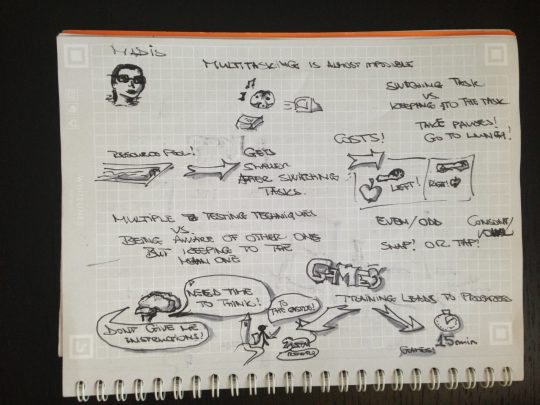 MADIS
MULTITASKING IS ALMOST IMPOSSIBLE
SWITCHING TASK
VS
KEEPING TO THE TASK
TAKE PAUSES!
GO TO LUNCH!
RESOURCE POOL!
GETS
SMALLER
AFTER SWITCHING
TASKS.
COSTS!
LEFT!
RIGHT!
MULTIPLE TESTING TECHNIQUES
VS.
BEING AWARE OF OTHER ONE
BUT KEEPING TO THE
MAIN ONE
EVEN/ODD
CONSONANT/
VOWEL
SNAP! OR TAP!
GAMES
NEED TIME
TO THINK!
DON'T GIVE ME
INSTRUCTIONS!
TO
THE CASTLE!
TRAINING LEADS TO PROGRESS
GAMES!
15 min